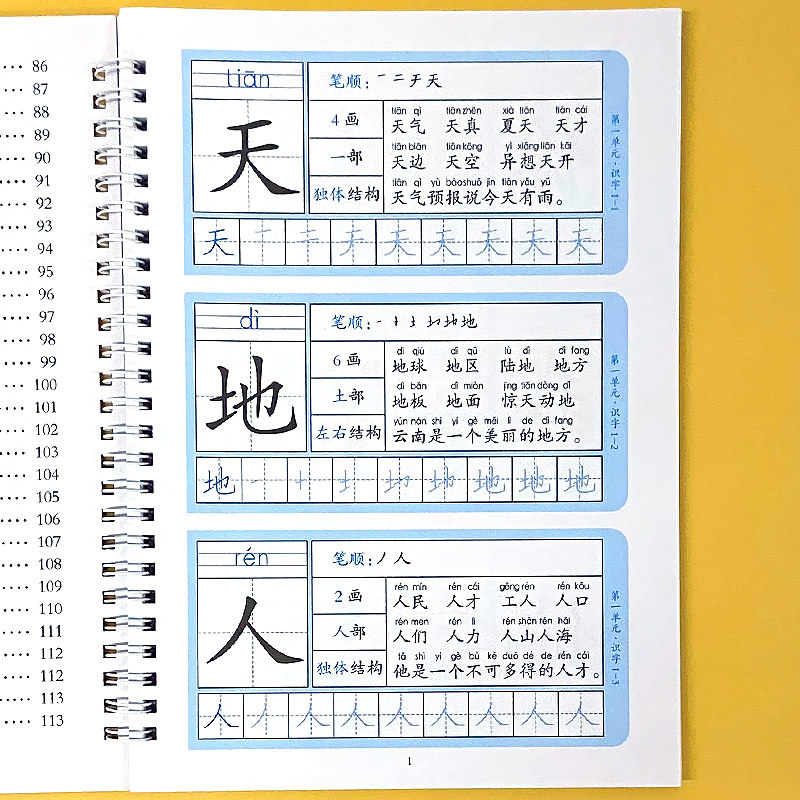 86
87
88
89
90
91
92
93
94
95
96
97
98
99
100
101
102
103
104
105
106
107
108
109
110
111
112
112
113
113
tiān
天
笔顺:一 二 于 天
4 画
一部
独体结构
tiān qì tiān zhēn xià tiān tiān cái
天气 天真 夏天 天才
tiān biān tiān kōng yì xiǎng tiān kāi
天边 天空 异想天开
tiān qì yù bào shuō jīn tiān yǒu yǔ
天气预报说今天有雨。
天
第一单元·识字 1-1
dì
地
笔顺:
6 画
土部
左右结构
dì qiú dì qū lù dì dì fang
地球 地区 陆地 地方
dì bǎn dì miàn jīng tiān dòng dì
地板 地面 惊天动地
yún nán shì yí gè měi lì de dì fang
云南是一个美丽的地方。
地
第一单元·识字 1-2
rén
人
笔顺:丿 人
2 画
人部
独体结构
rén mín rén cái gōng rén rén kǒu
人民 人才 工人 人口
rén men rén lì rén shān rén hǎi
人们 人力 人山人海
tā shì yí gè bù kě duō dé de rén cái
他是一个不可多得的人才。
人 丿 人 人 人 人 人 人 人
第一单元·识字 1-3
1